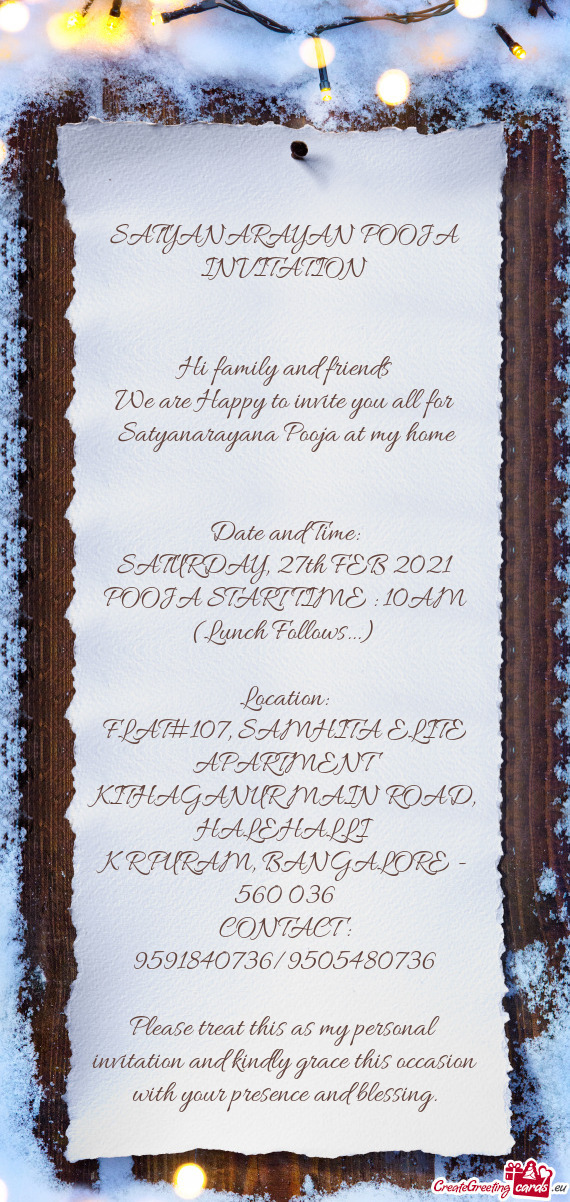 SATYANARAYAN POOJA
INVITATION
Hi family and friends
We are Happy to invite you all for
Satyanarayana Pooja at my home
Date and Time:
SATURDAY, 27th FEB 2021
POOJA START TIME : 10AM
(Lunch Follows...)
Location:
FLAT#107, SAMHITA ELITE
APARTMENT
KITHAGANUR MAIN ROAD,
HALEHALLI
K R PURAM, BANGALORE -
560 036
CONTACT :
9591840736/ 9505480736
Please treat this as my personal
invitation and kindly grace this occasion
with your presence and blessing.
CreateGreetingcards.eu